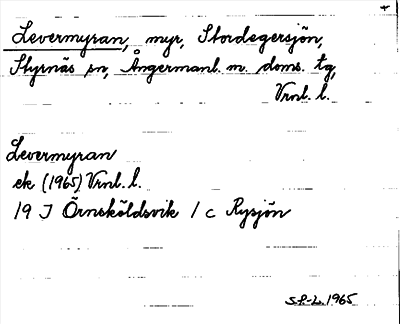 Levermyran, myr, Stordegersjön,
Styrnäs sn, Ångermanl. m. doms. tg,
Vrnl. l.
Levermyran
ek (1965) Vrnl. l.
19 J Örnsköldsvik 1 c Rysjön
1965